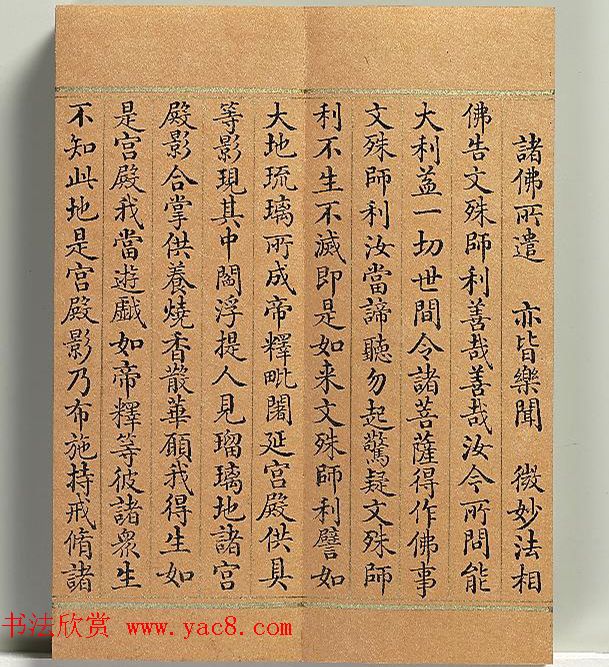 諸佛所遣　亦皆樂聞　微妙法相
佛告文殊師利善哉善哉汝今所問能
大利益一切世間令諸菩薩得作佛事
文殊師利汝當諦聽勿起驚疑文殊師
利不生不滅即是如来文殊師利譬如
大地琉璃所成帝釋毗闍延宮殿供具
等影現其中閻浮提人見瑠璃地諸宮
殿影合掌供養燒香散華願我得生如
是宮殿我當遊戲如帝釋等彼諸衆生
不知此地是宮殿影乃布施持戒脩諸
书法欣赏 www.yac8.com